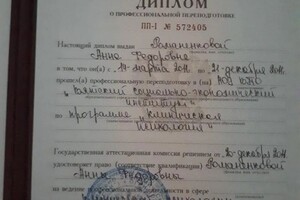 ДИПЛОМ
О ПРОФЕССИОНАЛЬНОЙ ПЕРЕПОДГОТОВКЕ
ПП-I № 572405
Настоящий диплом выдан Романенковой
Анне Федоровне
в том, что он(а) с 14 марта 2011 по 21 декабря 2011
прошел(а) профессиональную переподготовку в (на)
социально-экономический
институт"
по программе "Клиническая
психология"
Государственная аттестационная комиссия решением от 20 декабря 2011
удостоверяет право (соответствие квалификации) Романенковой
Анны Федоровны
на ведение профессиональной деятельности в сфере